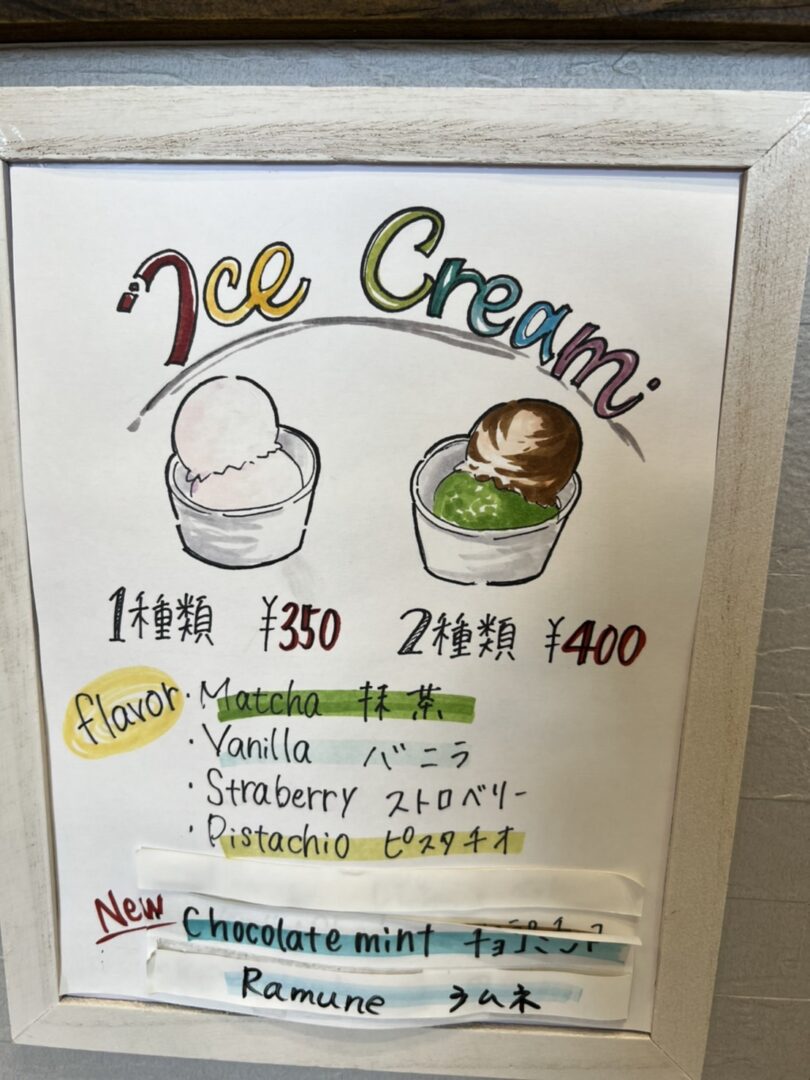 Ice Cream
1種類 ¥350 2種類 ¥400
flavor
・Matcha 抹茶
・Vanilla バニラ
・Straberry ストロベリー
・Pistachio ピスタチオ
New Chocolate mint チョコミント
Ramune ラムネ